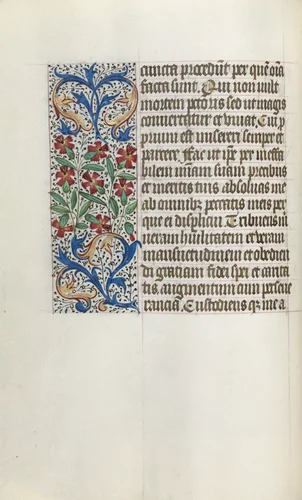 cuncta procedunt per quē oīa
facta sunt. Qui non vult
mortem pctoris sed ut magis
convertetur et vivat. Cui p
prium est misereri semper et
parcere. Fac ut ip̄e per ineffa
bilem mīam suam precibus
et meritis tuis absolvas me
ab omnibꝫ peccatis meis per
que ei displicui. Tribuens m̄
veram humilitatem et veram
mansuetudinem et obedien
di gratiam fidei spei et carita
tis augmentum cum perseve
rancia. Custodiens qꝫ me a